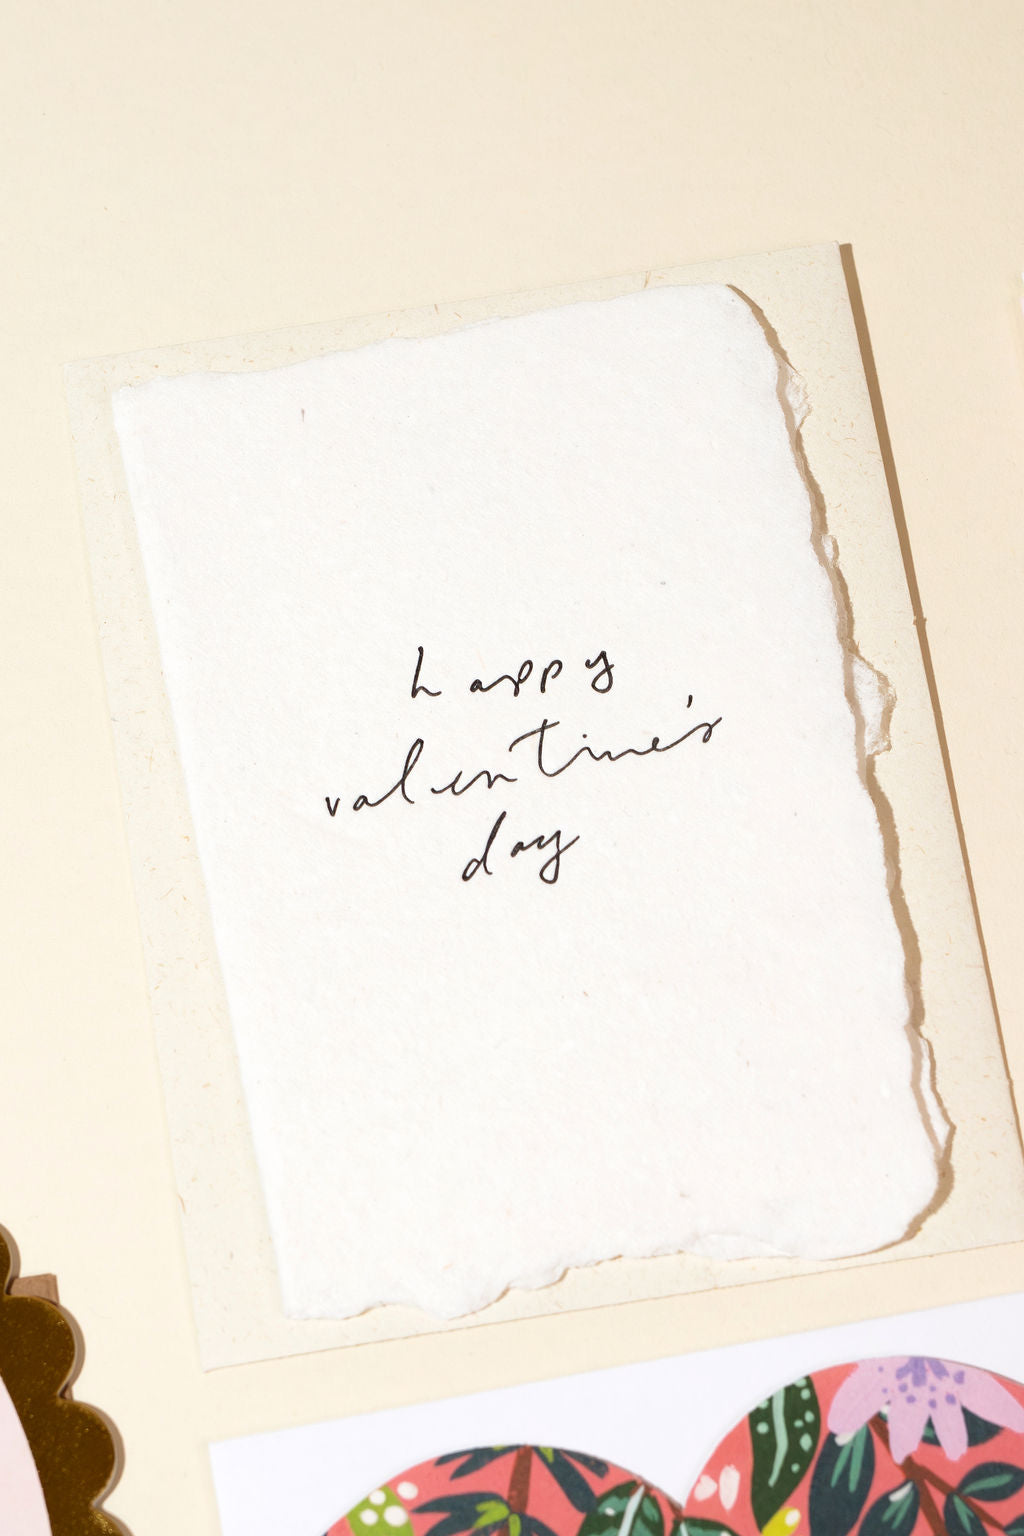 happy
valentine's
day